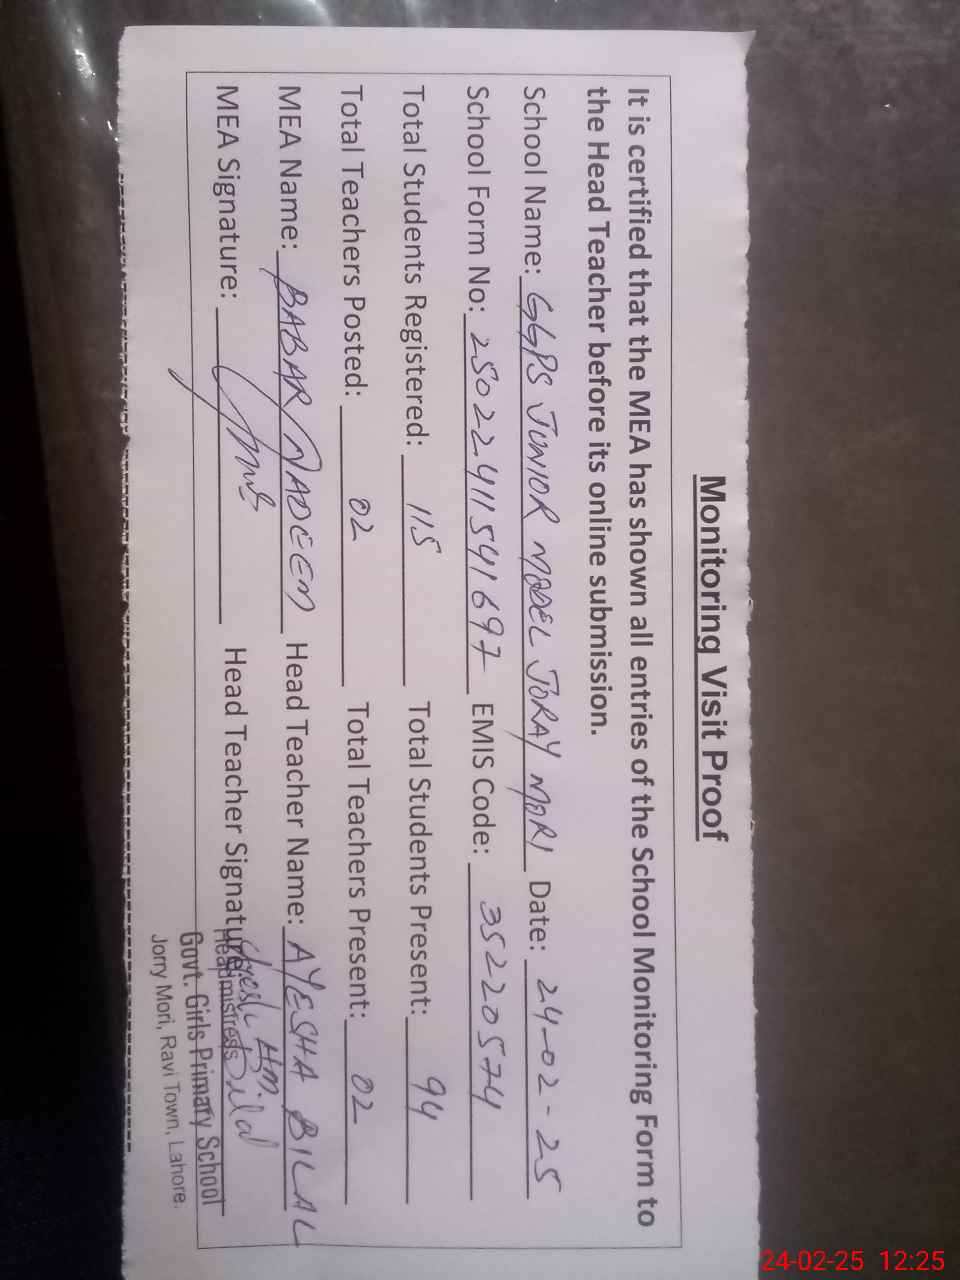 Monitoring Visit Proof
It is certified that the MEA has shown all entries of the School Monitoring Form to
the Head Teacher before its online submission.
School Name: GGPS JUNIOR MODEL JORAY MORI Date: 24-02-25
School Form No: 25022411541697 EMIS Code: 35220574
Total Students Registered: 115 Total Students Present: 94
Total Teachers Posted: 02 Total Teachers Present: 02
MEA Name: BABAR NADEEM Head Teacher Name: AYESHA BILAL
MEA Signature: Head Teacher Signature:
Headmistress
Govt. Girls Primary School
Jorry Mori, Ravi Town, Lahore.
24-02-25 12:25